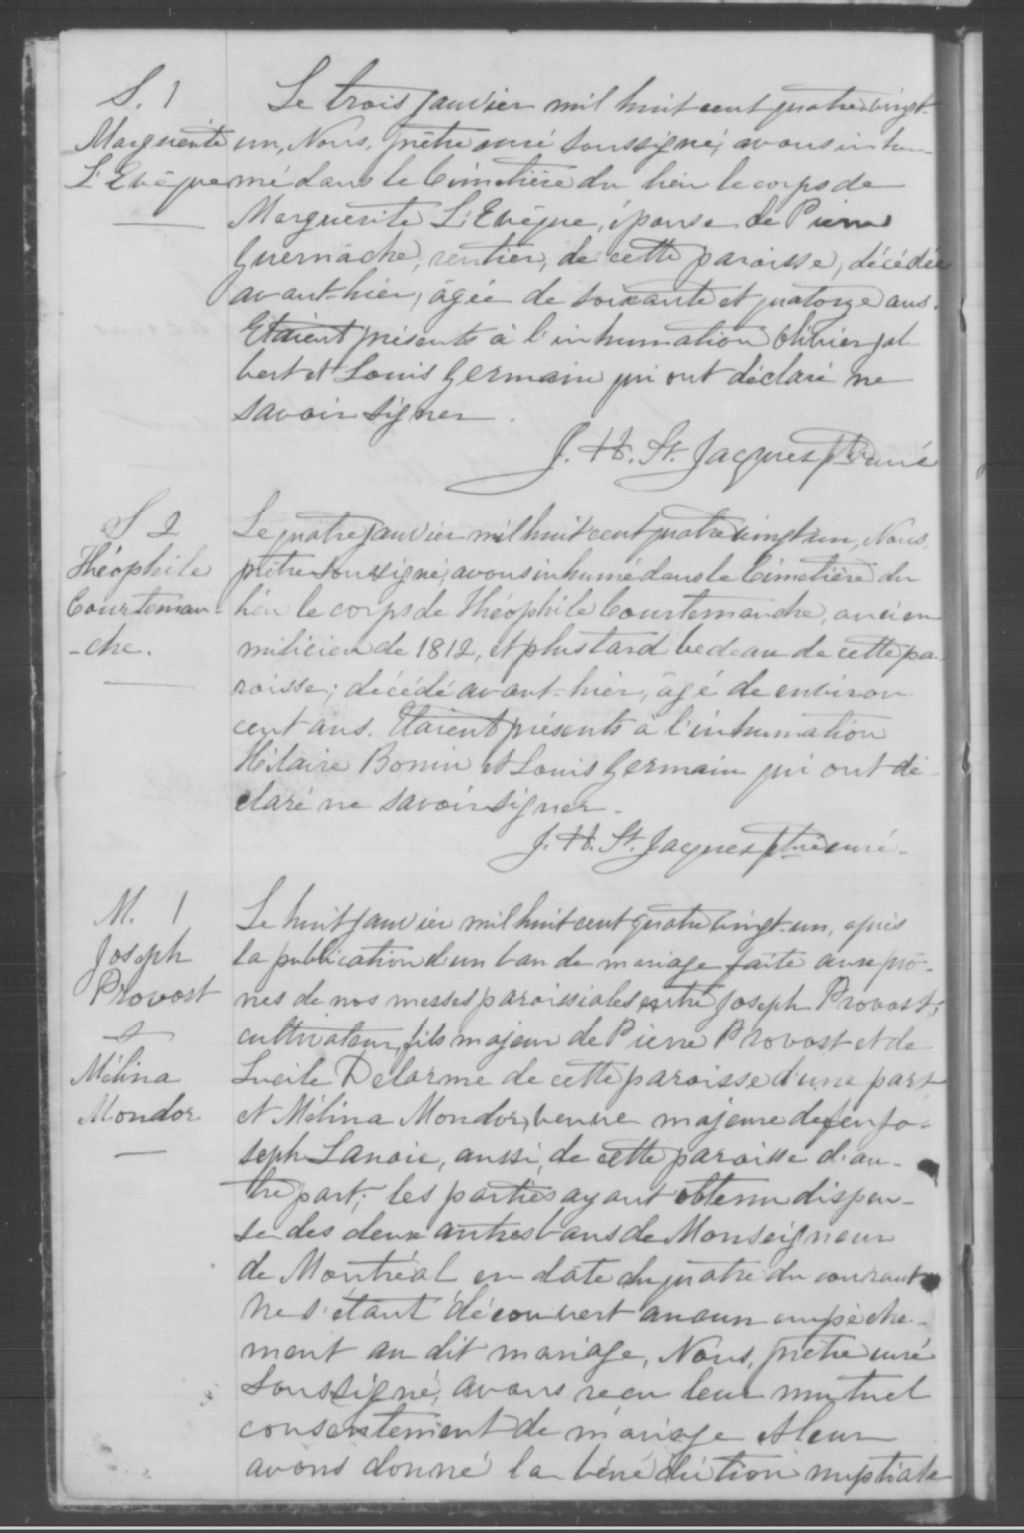 S. 1
Marguerite
L'Evêque
Le trois janvier mil huit cent quatre vingt-
un, Nous, prêtre curé soussigné, avons inhu-
mé dans le Cimetière du lieu le corps de
Marguerite L'Evêque, épouse de Pierre
Guernache, rentier, de cette paroisse, décédée
avant-hier, âgée de soixante et quatorze ans.
Etaient présents à l'inhumation Olivier Jal-
bert et Louis Germain qui ont déclaré ne
savoir signer.
J. H. St. Jacques Ptre curé
S 2
Théophile
Courteman-
-che.
Le quatre janvier mil huit cent quatre vingt un, Nous,
prêtre soussigné, avons inhumé dans le Cimetière du
lieu le corps de Théophile Courtemanche, ancien
milicien de 1812, et plus tard bedeau de cette pa-
roisse; décédé avant-hier, âgé de environ
cent ans. Etaient présents à l'inhumation
Hilaire Bonin et Louis Germain qui ont dé-
claré ne savoir signer.
J. H. St. Jacques Ptre curé
M. 1
Joseph
Provost
&
Mélina
Mondor
Le huit janvier mil huit cent quatre vingt-un, après
la publication d'un ban de mariage faite aux prô-
nes de nos messes paroissiales entre Joseph Provost,
cultivateur, fils majeur de Pierre Provost et de
Lucile Delorme de cette paroisse d'une part
et Mélina Mondor, veuve majeure de feu Jo-
seph Lanoie, aussi de cette paroisse d'au-
tre part; les parties ayant obtenu dispen-
se des deux autres bans de Monseigneur
de Montréal en date du quatre du courant
ne s'étant découvert aucun empêche-
ment au dit mariage, Nous, prêtre curé
soussigné, avons reçu leur mutuel
consentement de mariage et leur
avons donné la bénédiction nuptiale